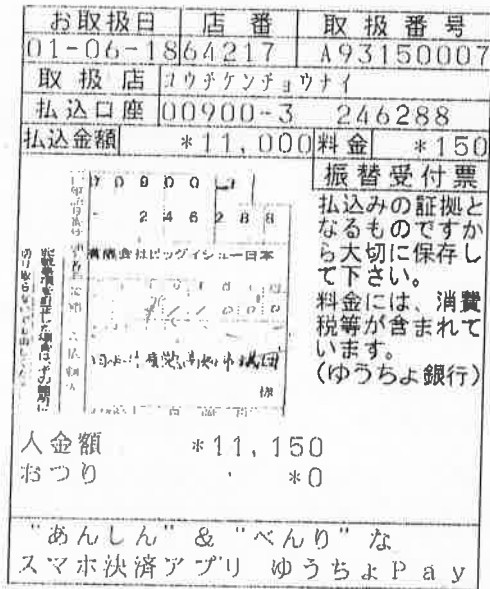 お取扱日 店番 取扱番号
01-06-18 64217 A93150007
取扱店 コウチケンチョウナイ
払込口座 00900-3 246288
払込金額 *11,000 料金 *150
振替受付票
00900
246288
有限会社ビッグイシュー日本
様
払込みの証拠と
なるものですか
ら大切に保存し
て下さい。
料金には、消費
税等が含まれて
います。
(ゆうちょ銀行)
入金額 *11,150
おつり *0
"あんしん"&"べんり"な
スマホ決済アプリ ゆうちょPay